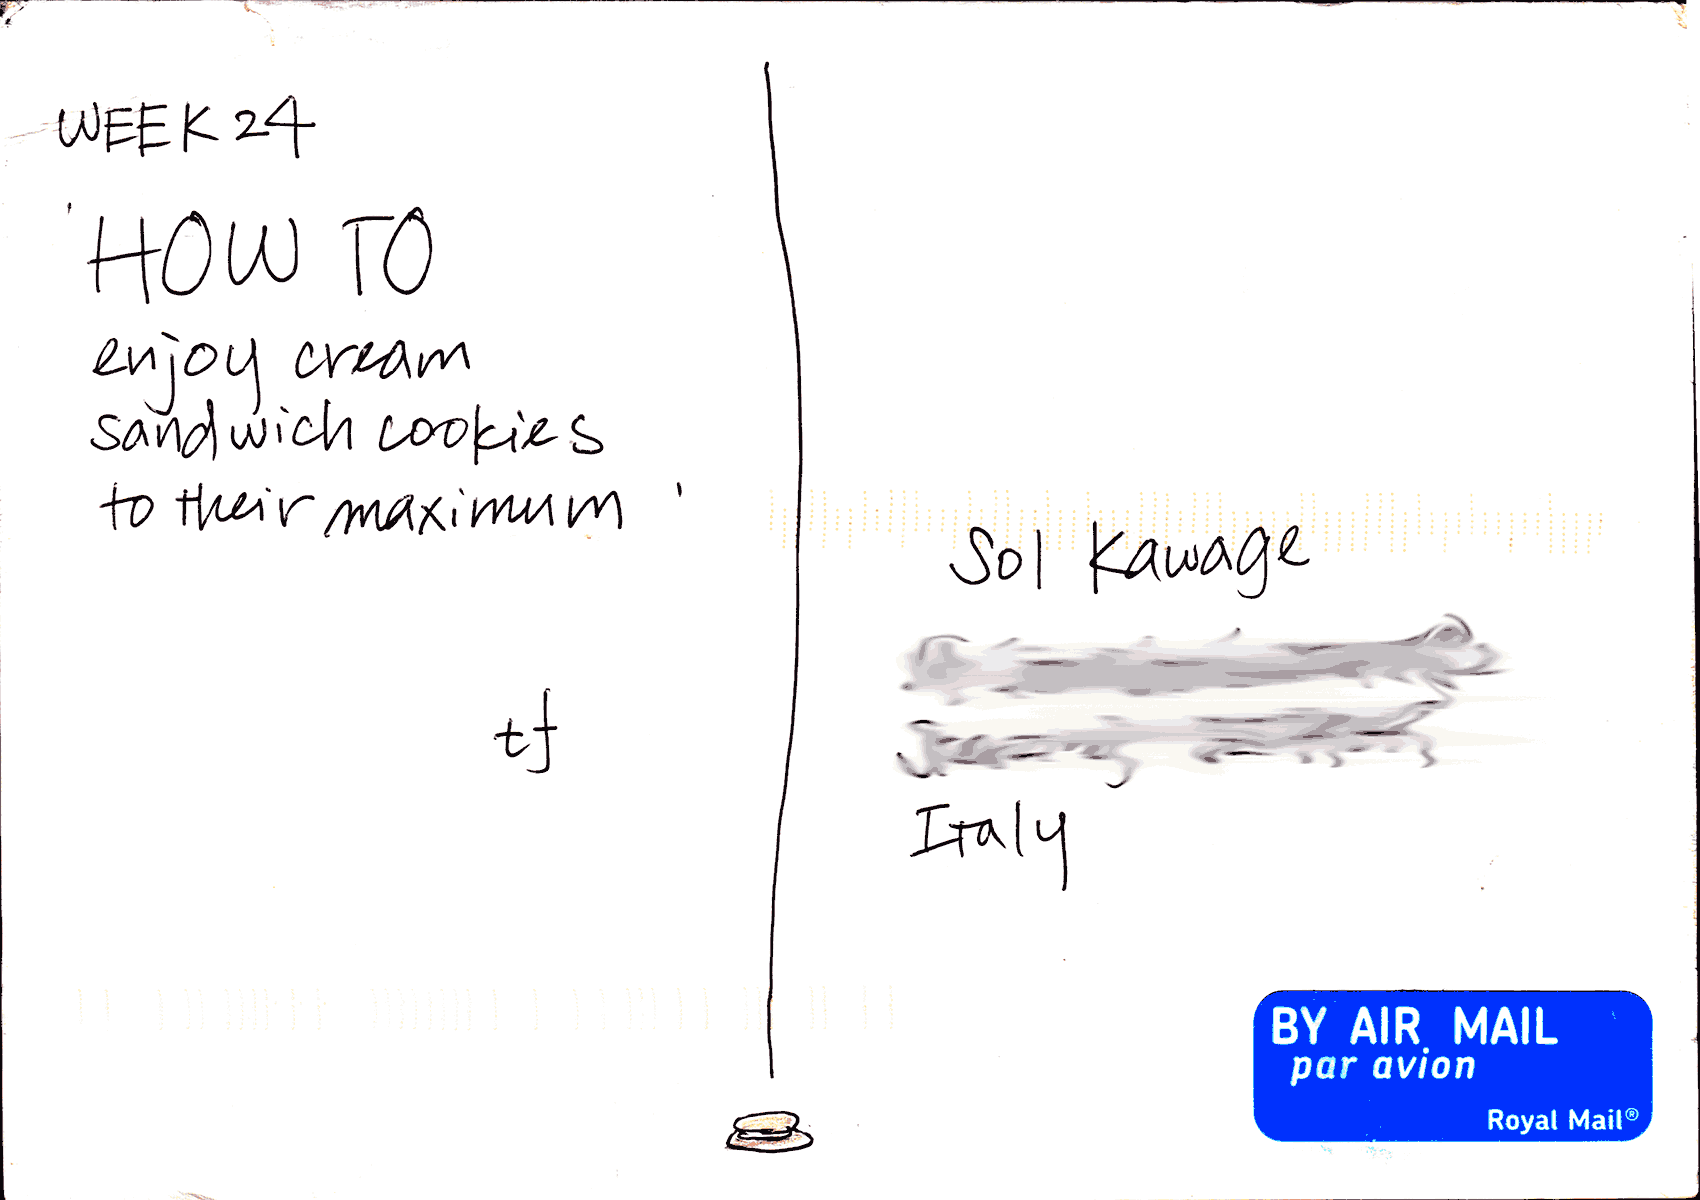 WEEK 24
'HOW TO
enjoy cream
sandwich cookies
to their maximum'
tf
Sol Kawage
Italy
BY AIR MAIL
par avion
Royal Mail®